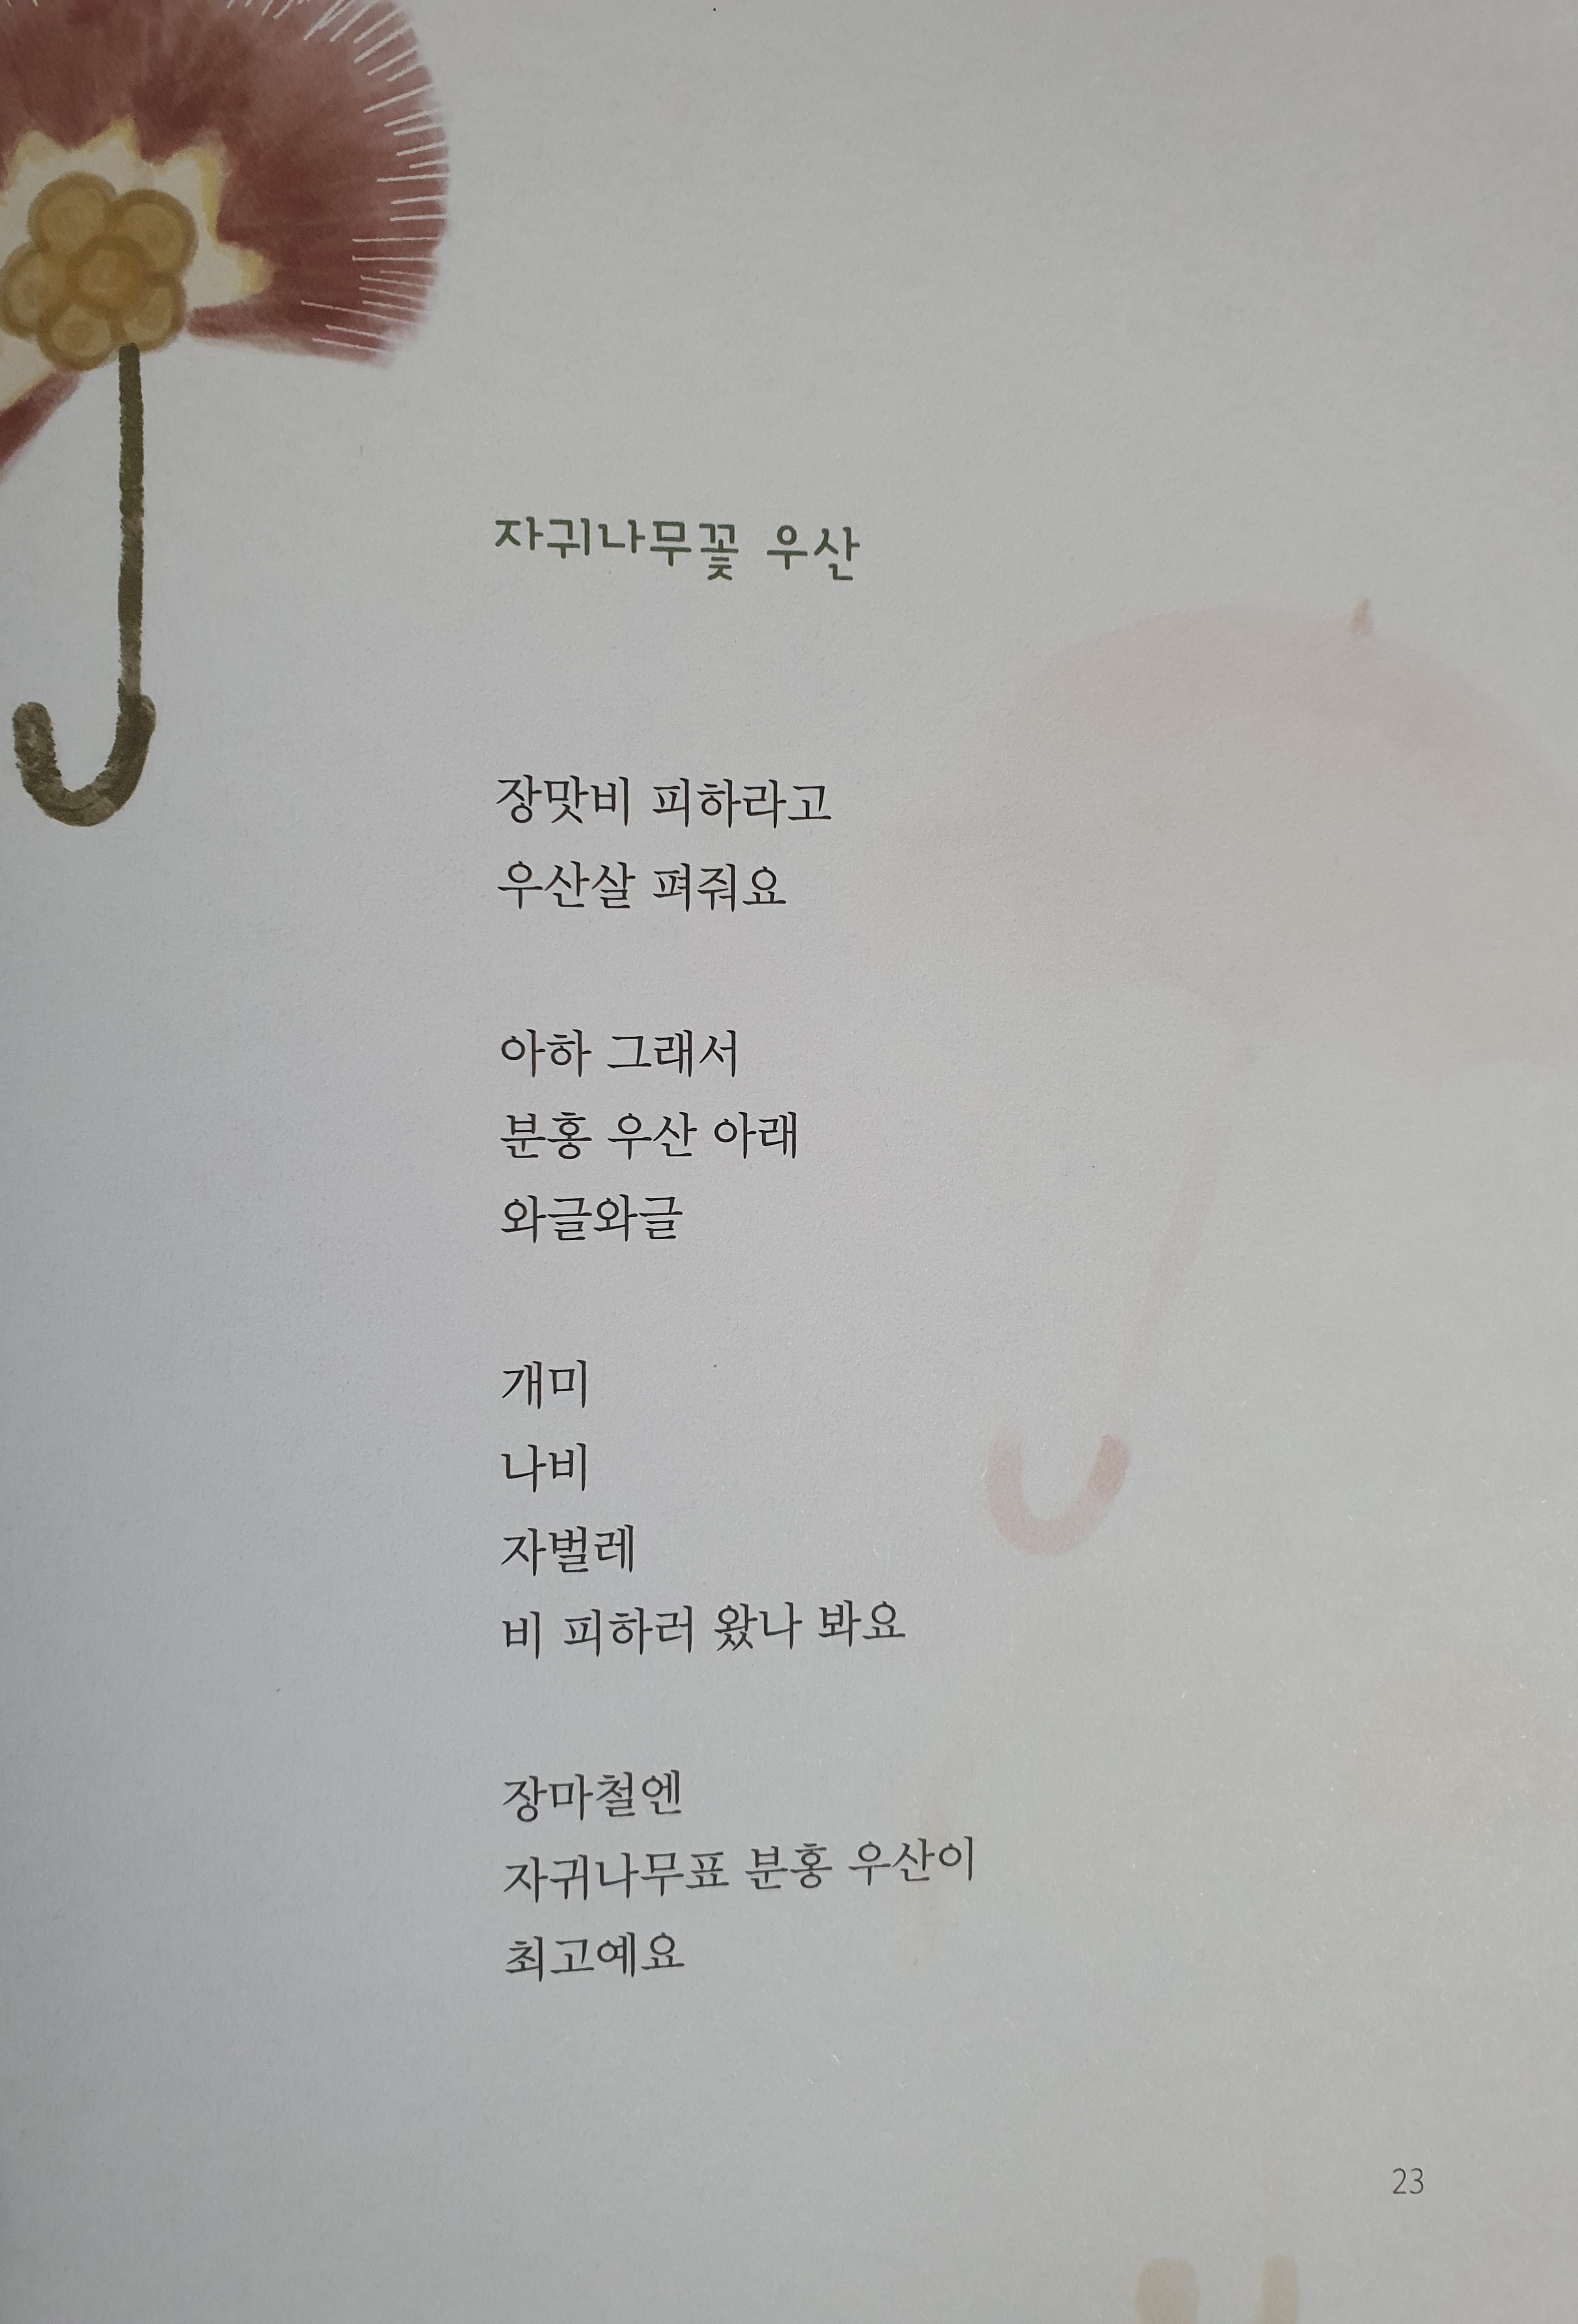 자귀나무꽃 우산
장맛비 피하라고
우산살 펴줘요
아하 그래서
분홍 우산 아래
와글와글
개미
나비
자벌레
비 피하러 왔나 봐요
장마철엔
자귀나무표 분홍 우산이
최고예요
23